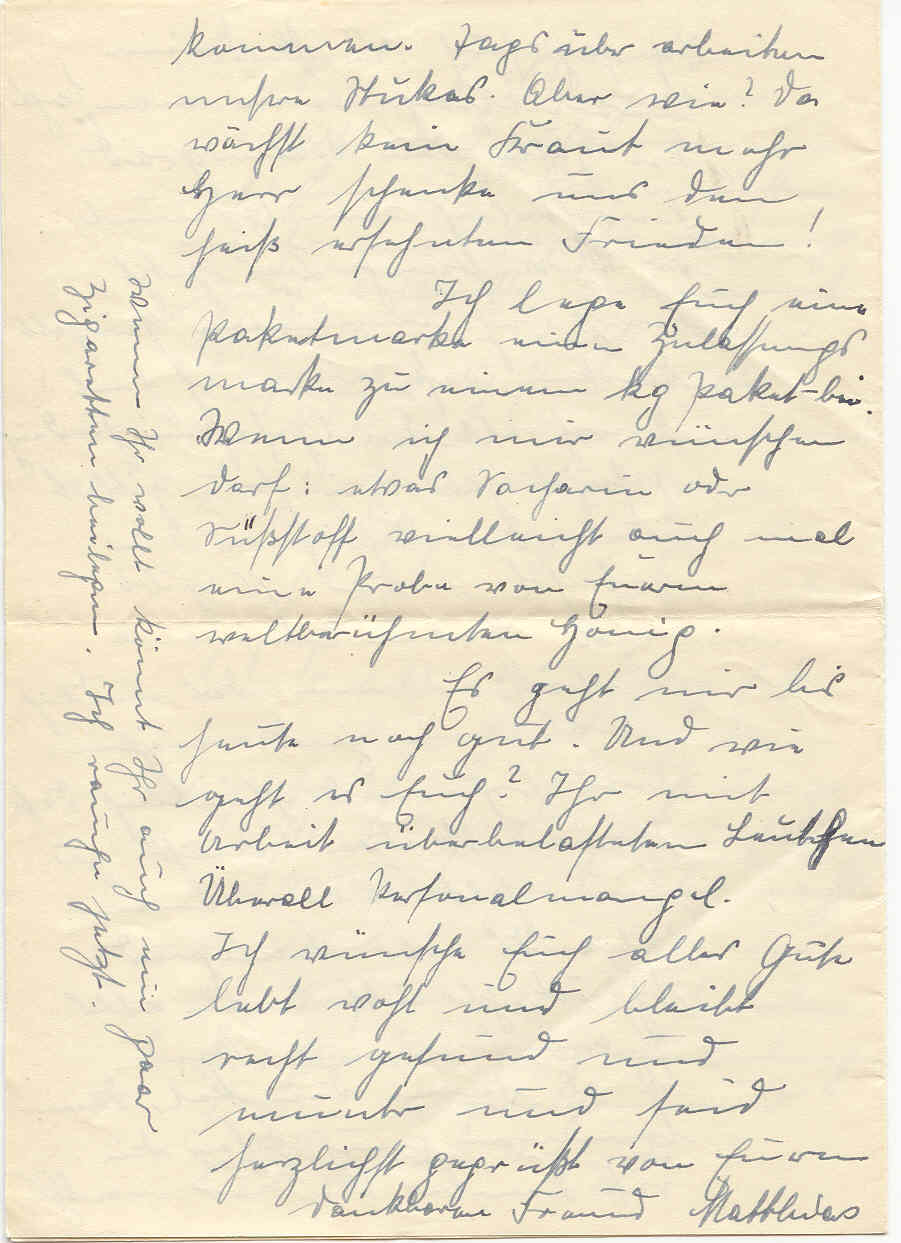 kommen. Tags über arbeiten
unsre Stukas. Aber wie? Da
wächst kein Kraut mehr
Herr schenke uns den
heiß ersehnten Frieden!
Ich lege Euch eine
Paketmarke einen Zulassungs
marke zu einem kg Paket bei.
Wenn ich mir wünschen
darf: etwas Sacharin oder
Süßstoff vielleicht auch mal
eine Probe von Euerm
weltberühmten Hönig.
Es geht mir bis
heute noch gut. Und wie
geht es Euch? Ihr mit
Arbeit überbelasteten Leutchen
Überall Personalmangel.
Ich wünsche Euch alles Gute
lebt wohl und bleibt
recht gesund und
munter und seid
herzlichst gegrüßt von Euerm
dankbaren Freund Matthias
Wenn Ihr wollt könnt Ihr auch ein paar
Zigaretten beilegen. Ich rauche jetzt.